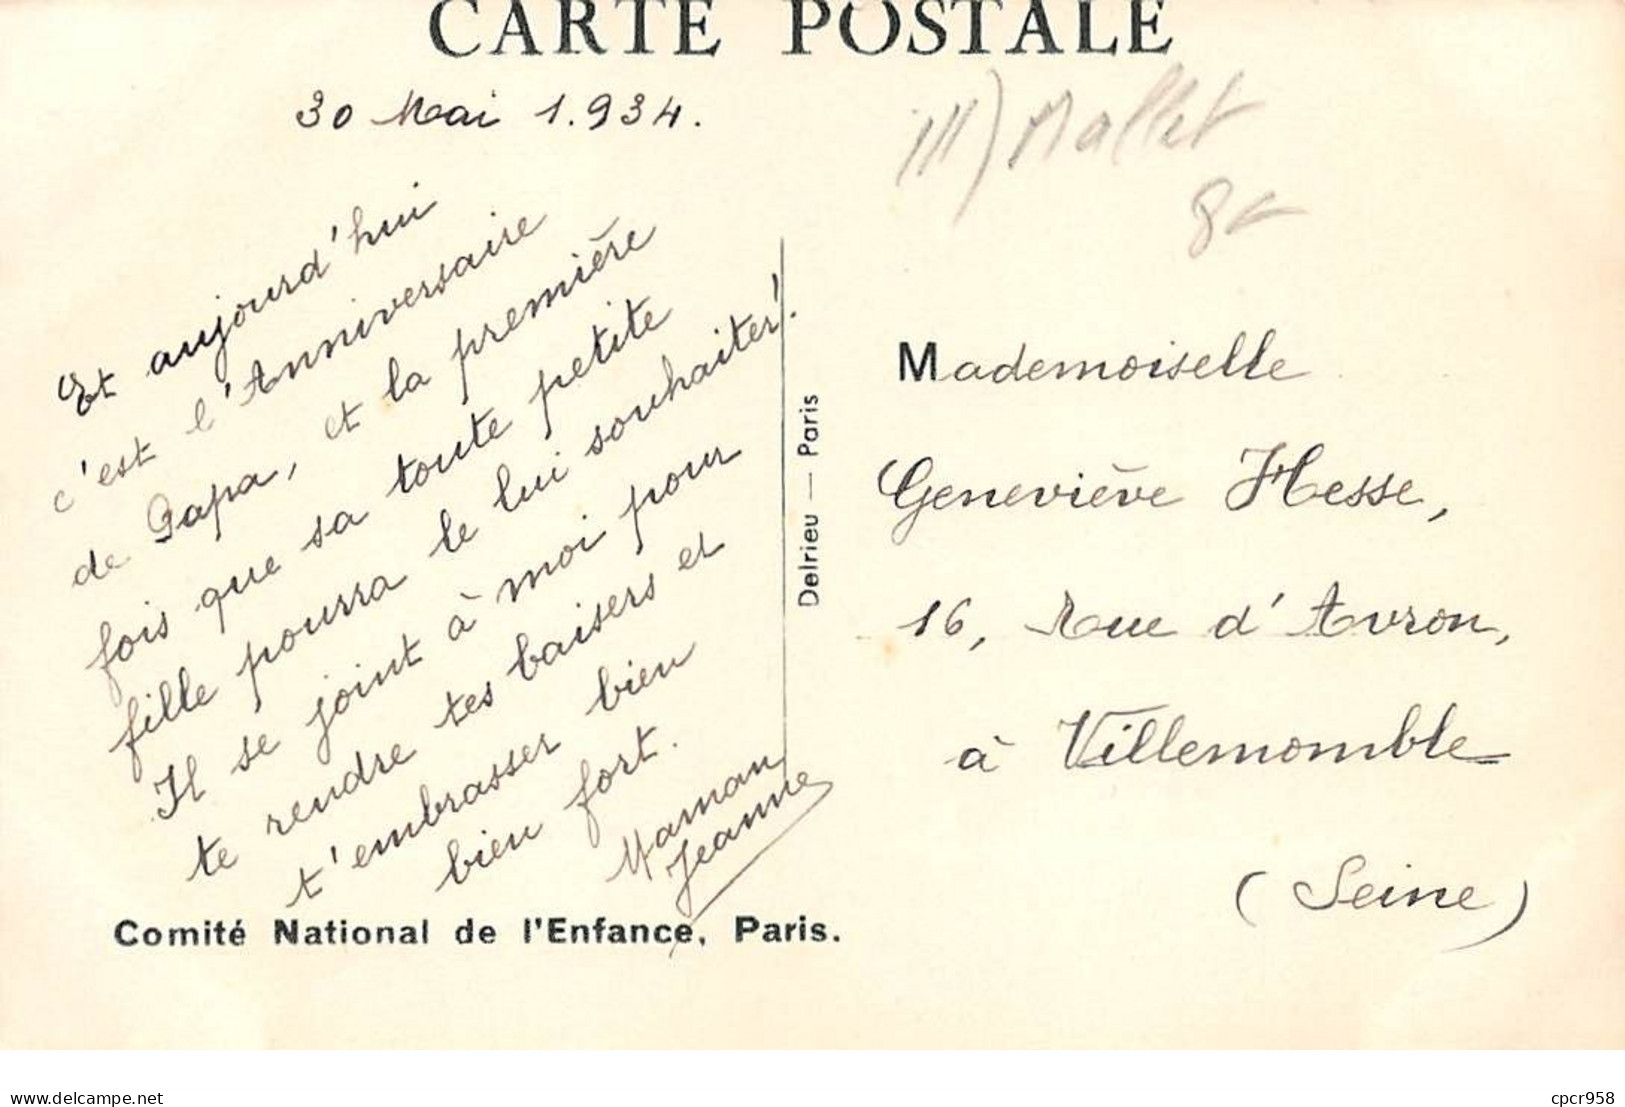 CARTE POSTALE
30 Mai 1.934.
Et aujourd'hui
c'est l'Anniversaire
de Papa, et la première
fois que sa toute petite
fille pourra le lui souhaiter!
Il se joint à moi pour
te rendre tes baisers et
t'embrasser bien
bien fort.
Maman
Jeanne
Comité National de l'Enfance, Paris.
Delrieu — Paris
Ill) Mallet
Mademoiselle
Geneviève Hesse,
16, Rue d'Avron,
à Villemomble
(Seine)
delcampe.net
cpcr958